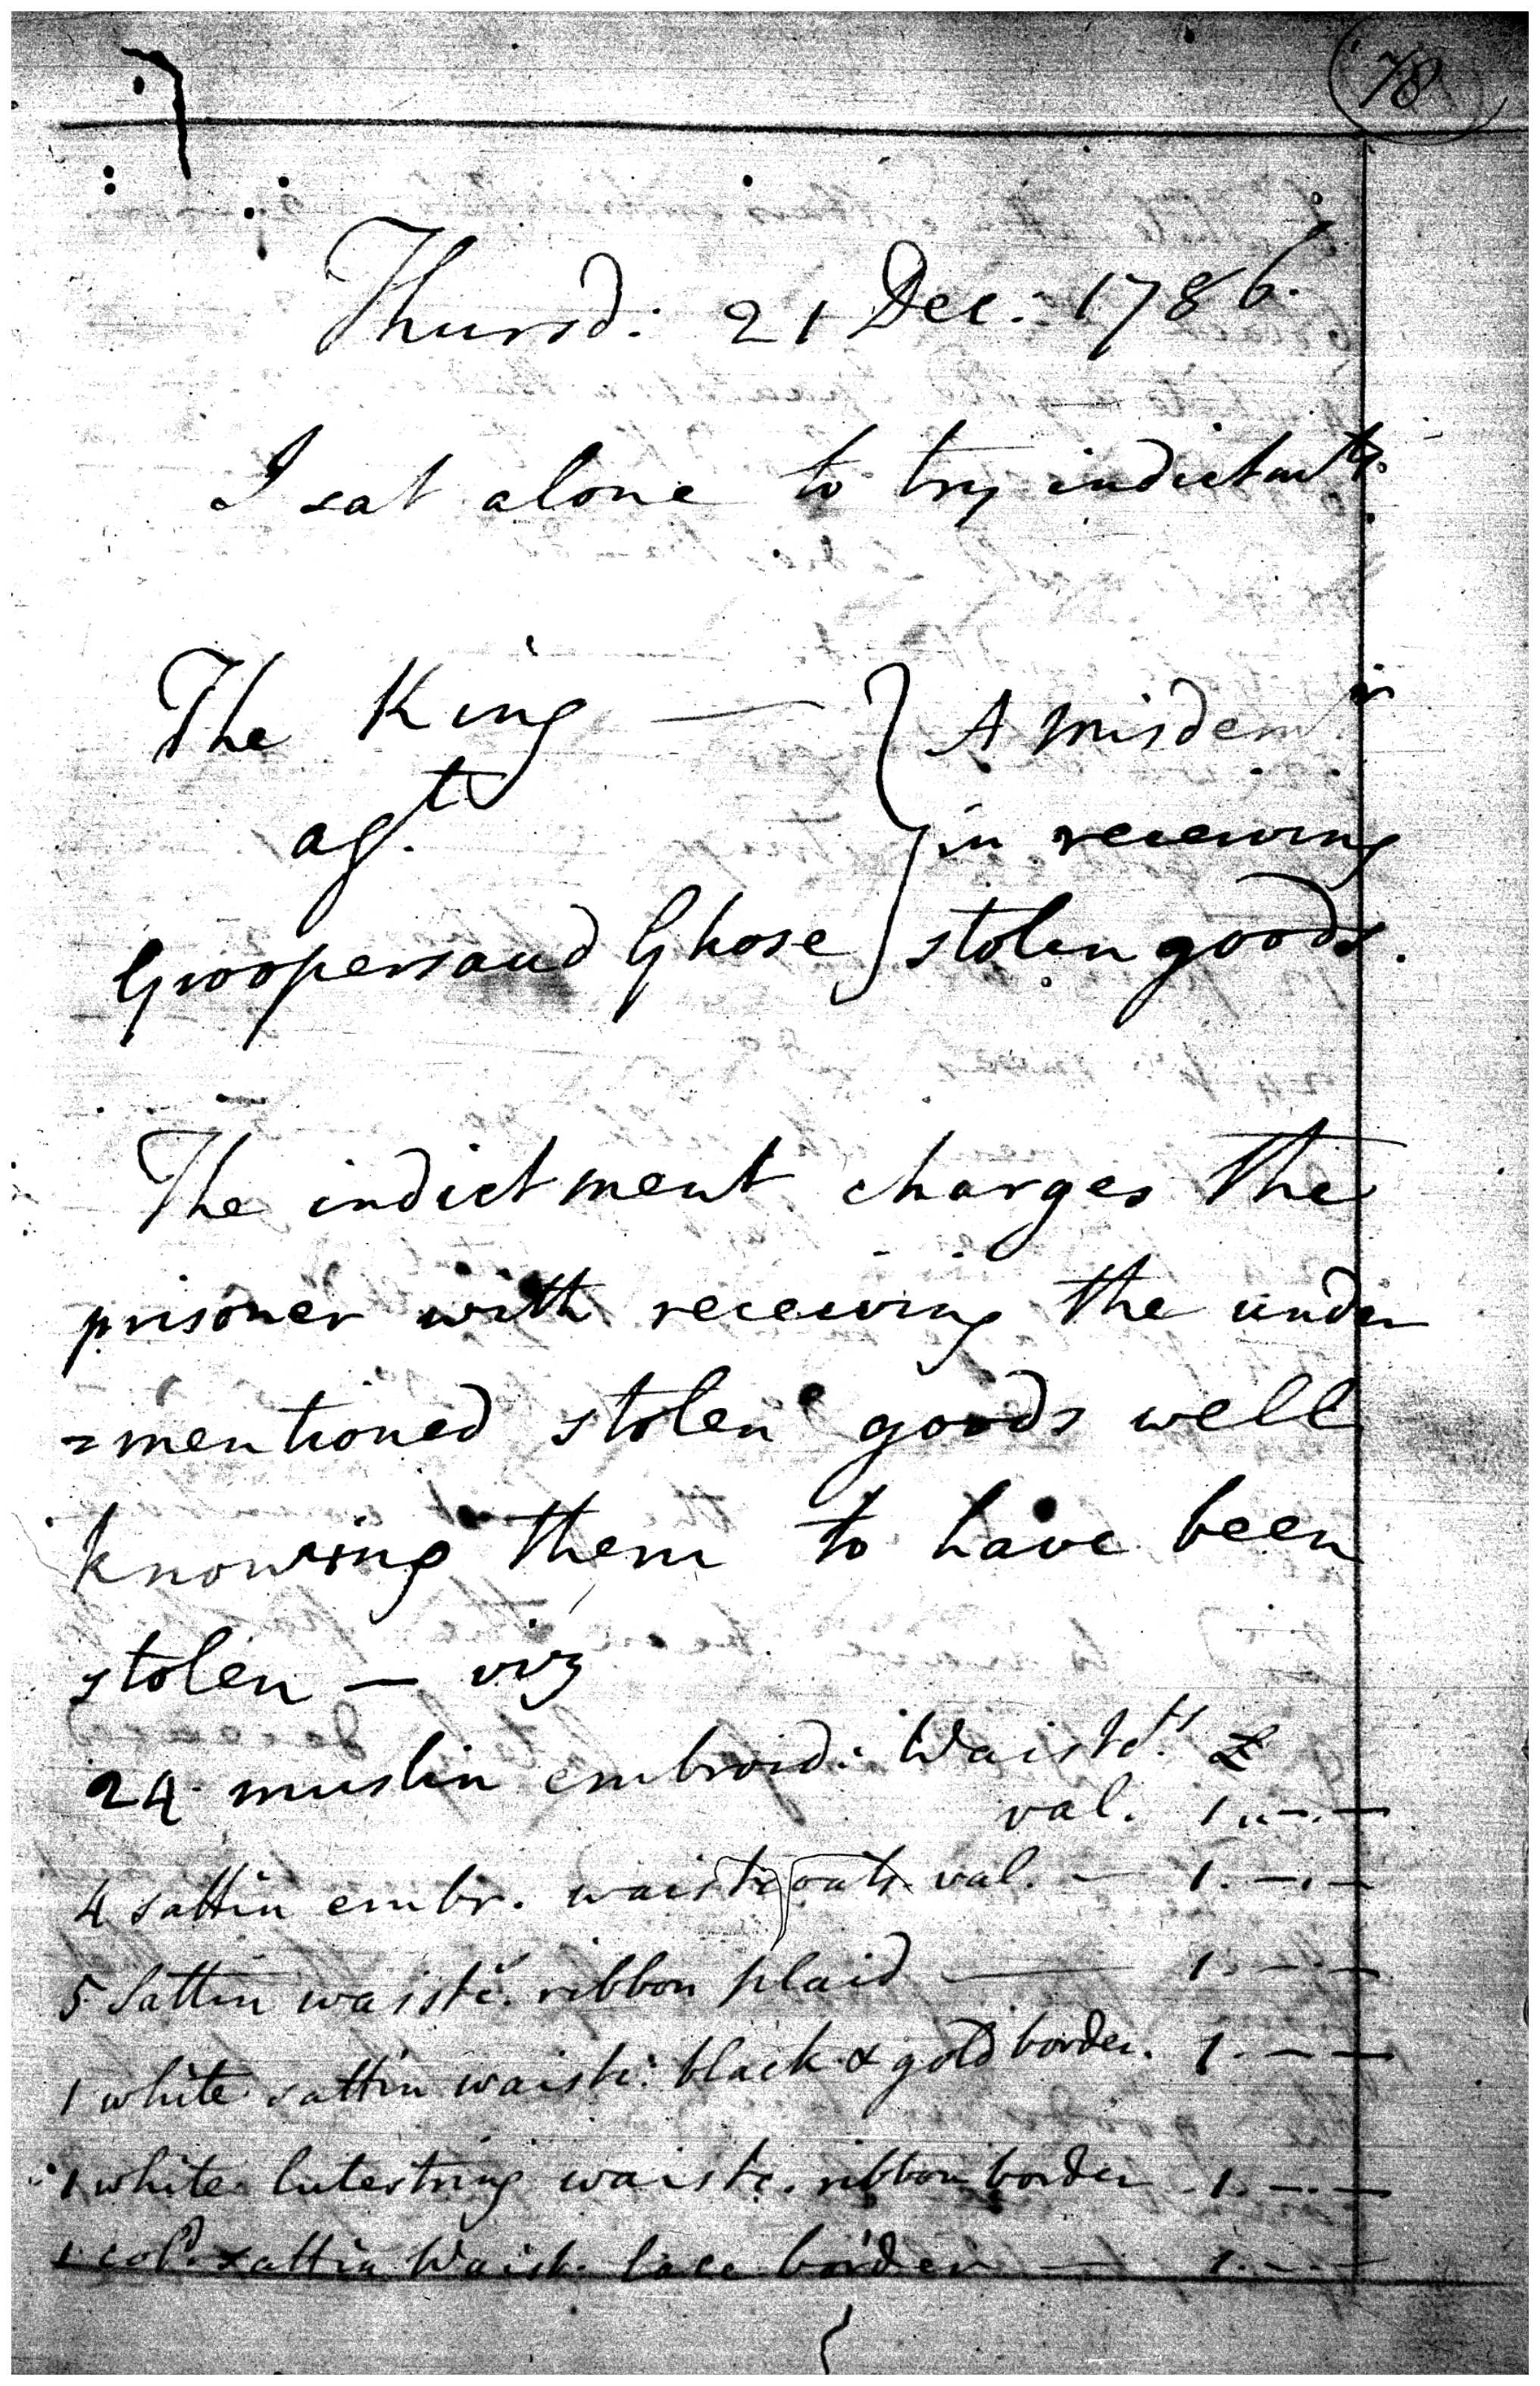 78
Thursd: 21 Dec: 1786.
I sat alone to try indictmts.
The King — } A misdemr.
agt. } in receiving
Groopersaud Ghose } stolen goods.
The indictment charges the
prisoner with receiving the under
=mentioned stolen goods well
knowing them to have been
stolen — viz
24 muslin embroid: Waistcts £
val. 1.. —. —
4 sattin embr. waistcoats val. — 1. —. —
5 Sattin waistc. ribbon plaid — 1. —. —
1 white sattin waistc: black & gold border. 1. — —
1 white lutestring waistc. ribbon border 1. —. —
1 cold. sattin Waistc. lace border — 1. —. —